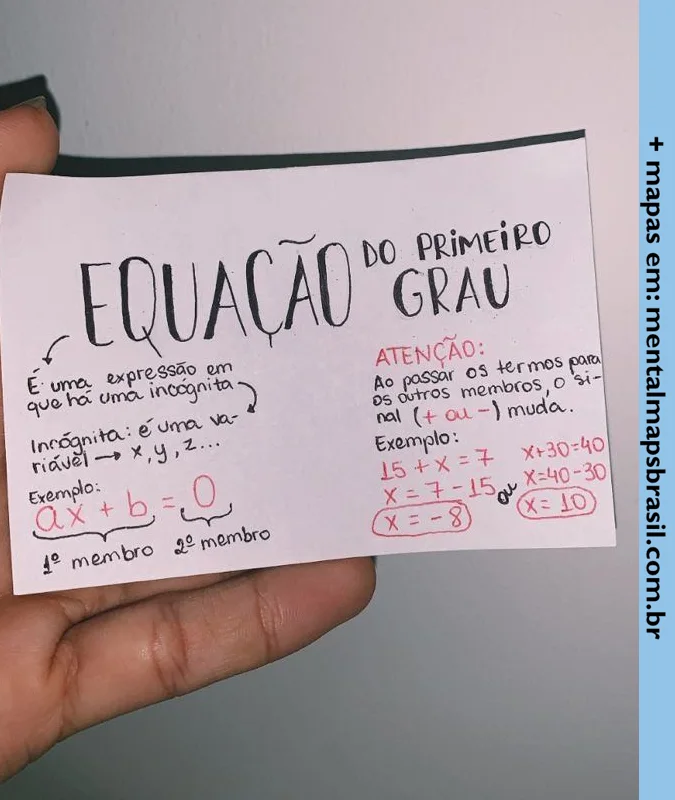 EQUAÇÃO DO PRIMEIRO
GRAU
É uma expressão em
que há uma incógnita
Incógnita: é uma va-
riável → x, y, z...
Exemplo:
ax + b = 0
1º membro 2º membro
ATENÇÃO:
Ao passar os termos para
os outros membros, o si-
nal (+ ou -) muda.
Exemplo:
15 + x = 7
x = 7 - 15
x = -8
ou
x+30=40
x=40-30
x= 10
+ mapas em: mentalmapsbrasil.com.br